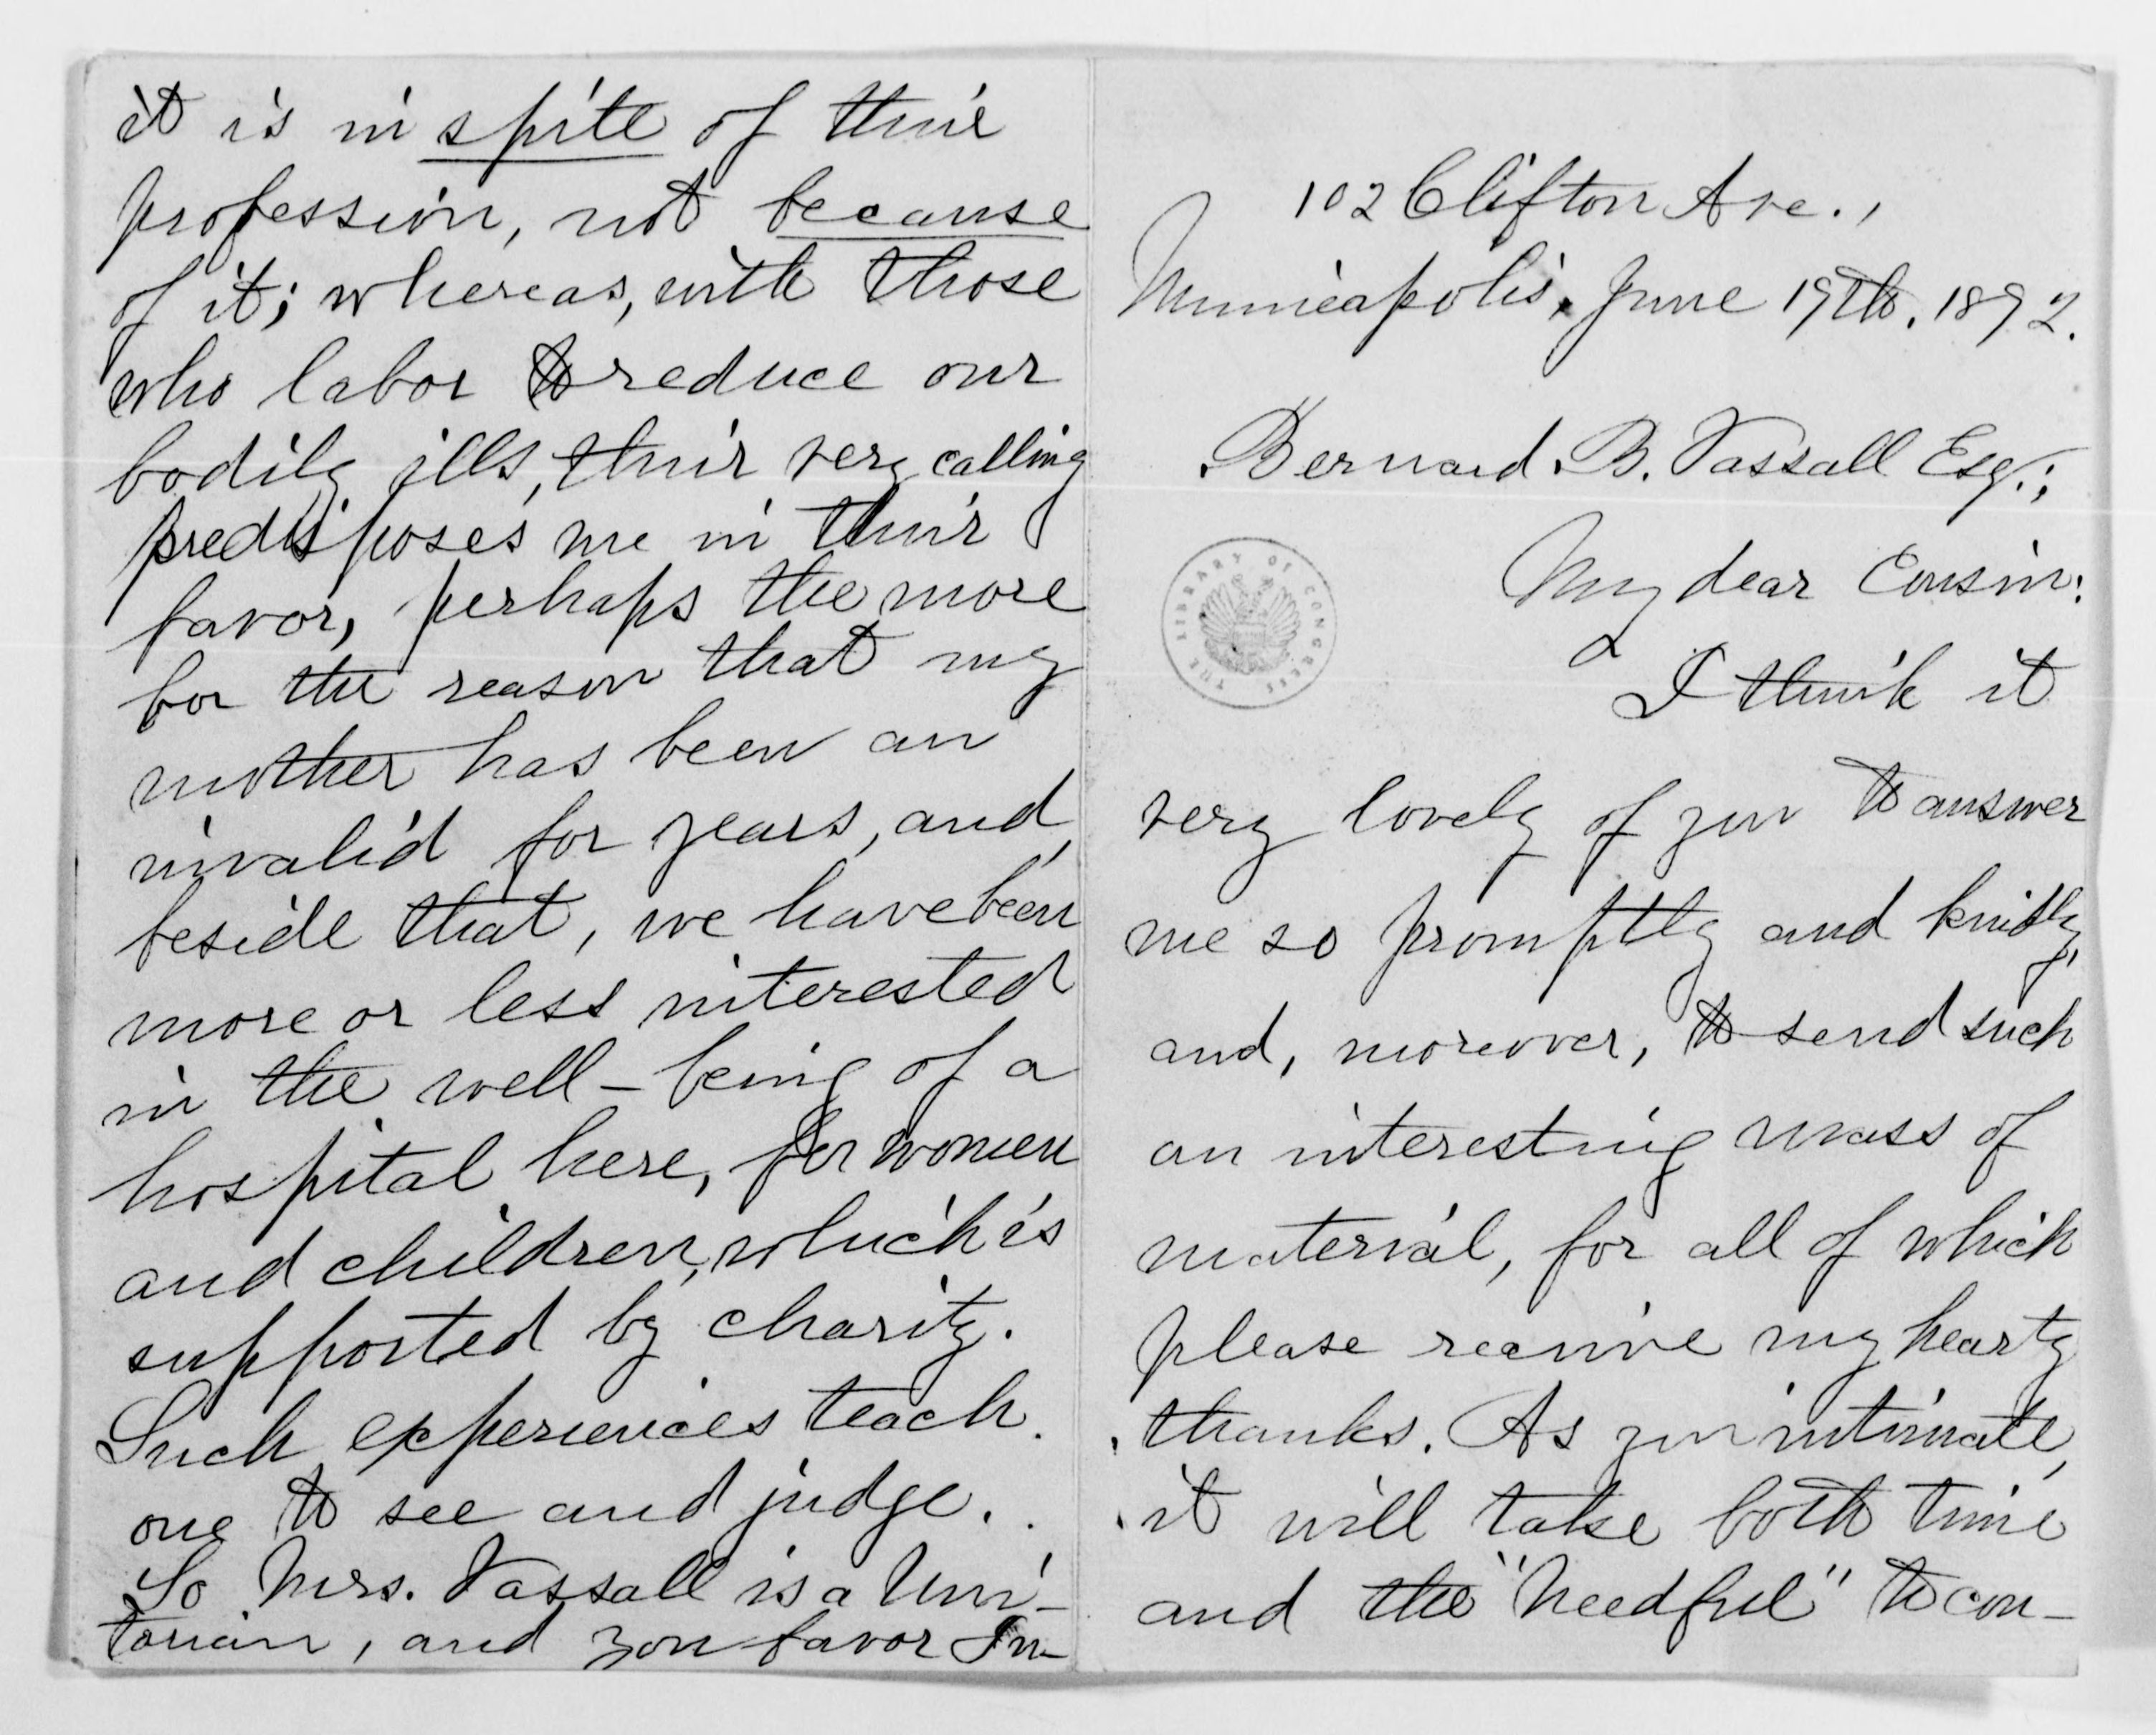 it is in spite of their
profession, not because
of it; whereas, with those
who labor to reduce our
bodily ills, their very calling
predisposes me in their
favor, perhaps the more
for the reason that my
mother has been an
invalid for years, and,
beside that, we have been
more or less interested
in the well-being of a
hospital here, for women
and children, which is
supported by charity.
Such experiences teach
one to see and judge.
So Mrs. Vassall is a Uni-
tarian, and you favor In-
102 Clifton Ave.,
Minneapolis, June 19th. 1892.
Bernard B. Vassall Esq.;
My dear Cousin:
I think it
very lovely of you to answer
me so promptly and kindly,
and, moreover, to send such
an interesting mass of
material, for all of which
please receive my hearty
thanks. As you intimate,
it will take both time
and the "needful" to con-
THE LIBRARY OF CONGRESS